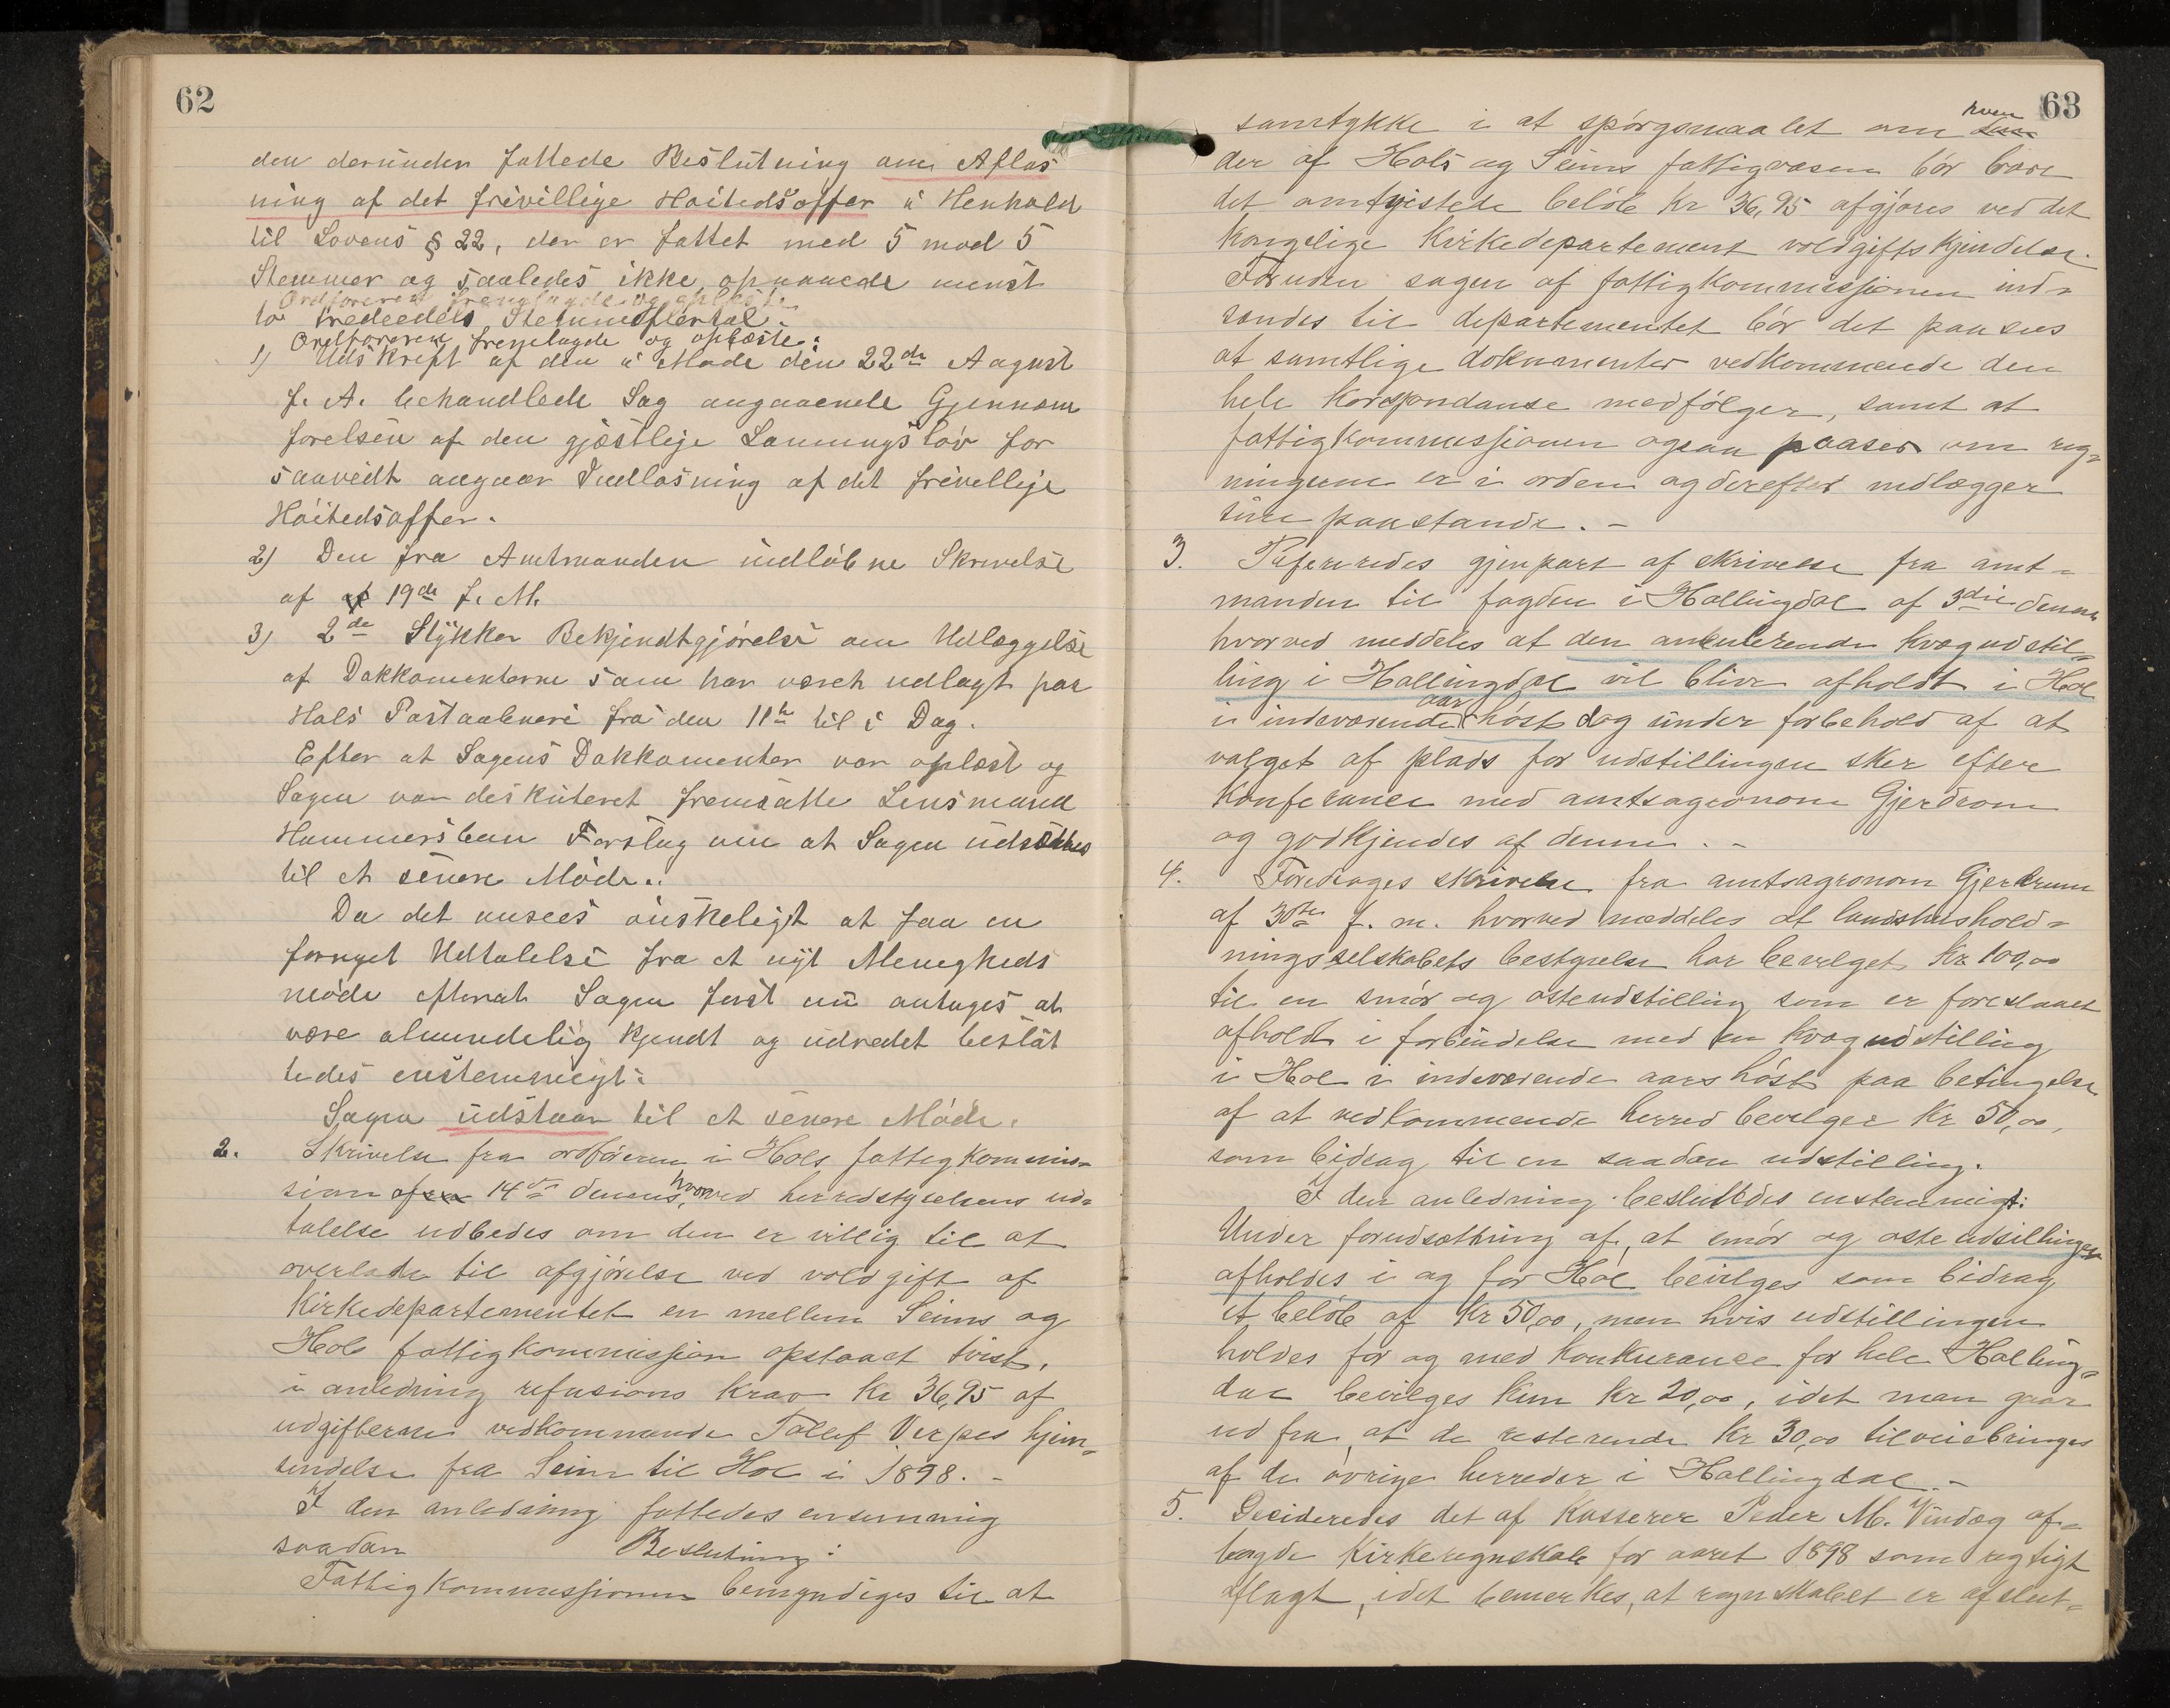 62
den derunder fattede Beslutning om Afløs
ning af det frivillige Høitedsoffer i Henhold
til Lovens § 22, der er fattet med 5 mod 5
Stemmer og saaledes ikke opnaaede minst
Ordføreren fremlagde og oplæste
to tredeedels Stemmeflertal.
Ordføreren fremlagde og oplæste:
1) Udskrift af den i Møde den 22de August
f. A. behandlede Sag angaaende Gjennem
førelsen af den gjestlige Lønningslov for
saavidt angaar Indløsning af det frivellige
Høitedsoffer.
2) Den fra Amtmanden indløbne Skrivelse
af 19de f. M.
3) 2de Stykker Bekjendtgjørelse om Udlæggelse
af Dokkomenterne som har været udlagt paa
Hols Postaabneri fra den 11te til i Dag.
Efter at Sagens Dokkomenter var oplæst og
Sagen var deskuteret fremsatte Lensmand
Hammersbøen Forslag om at Sagen udsættes
til et senere Møde.
Da det ansees ønskeligt at faa en
fornyet Udtalelse fra et nyt Menigheds
møde efterat Sagen først nu antages at
være almindelig kjendt og udredet beslut
tedes enstemmigt:
Sagen udstaar til et senere Møde.
2. Skrivelse fra ordføreren i Hols fattigkommis-
sion af 14de dennes, hvorved herredstyrelsens ud-
talelse udbedes om den er villig til at
overlade til afgjørelse ved voldgift af
Kirkedepartementet en mellem Seims og
Hols fattigkommissjon opstaaet tvist,
i anledning refusions krav Kr 36,95 af
udgifterne vedkommende Tollef Verpes hjem-
sendelse fra Seim til Hol i 1898. -
I den anledning fattedes ensemmig
saadan Beslutning:
Fattigkommissjonen bemyndiges til at
63
samtykke i at spørgsmaalet om hvem
der af Hols og Seims fattigvæsen bør bære
det omtvistede beløb Kr 36,95 afgjøres ved det
Kongelige Kirkedepartement voldgiftskjendelse.
Foruden sagen af fattigkommissjonen ind-
sendes til departementet bør det paasees
at samtlige dokumenter vedkommende den
hele Korespondanse medfølger, samt at
fattigkommissjonen ogsaa paaser om reg-
ningerne er i orden og derefter nedlægger
sine paastande. -
3. Refereredes gjenpart af skrivelse fra amt-
manden til fogden i Hallingdal af 3die dennes
hvorved meddeles at den ambulerende kvægudstil-
ling i Hallingdal vil blive afholdt i Hol
i indeværende aars høst dog under forbehold af at
valget af plads for udstillingen sker efter
Konferance med amtsagronom Gjerdrom
og godkjendes af denne. -
4. Foredroges skrivelse fra amtsagronom Gjerdrum
af 30te f. m. hvorved meddeles at landshushold-
ningsselskabets bestyrelse har bevilget Kr 100,00
til en smør og osteudstilling som er foreslaaet
afholdt i forbindelse med en kvægudstilling
i Hol i indeværende aars høst paa betingelse
af at vedkommende herred bevilger Kr 50,00,
som bidrag til en saadan udstilling.
I den anledning besluttedes enstemmigt:
Under forudsætning af, at smør og oste udsillingen
afholdes i og for Hol bevilges som bidrag
et beløb af Kr 50,00, men hvis udstillingen
holdes for og med Konkurance for hele Halling-
dal bevilges kun Kr 20,00, idet man gaar
ud fra at de resterende Kr 30,00 tilveiebringes
af de øvrige herreder i Hallingdal. -
5. Decideredes det af Kasserer Peder M. Vindæg af-
lagde Kirkeregnskab for aaret 1898 som rigtigt
aflagt, idet bemerkes, at regnskabet er afslut-